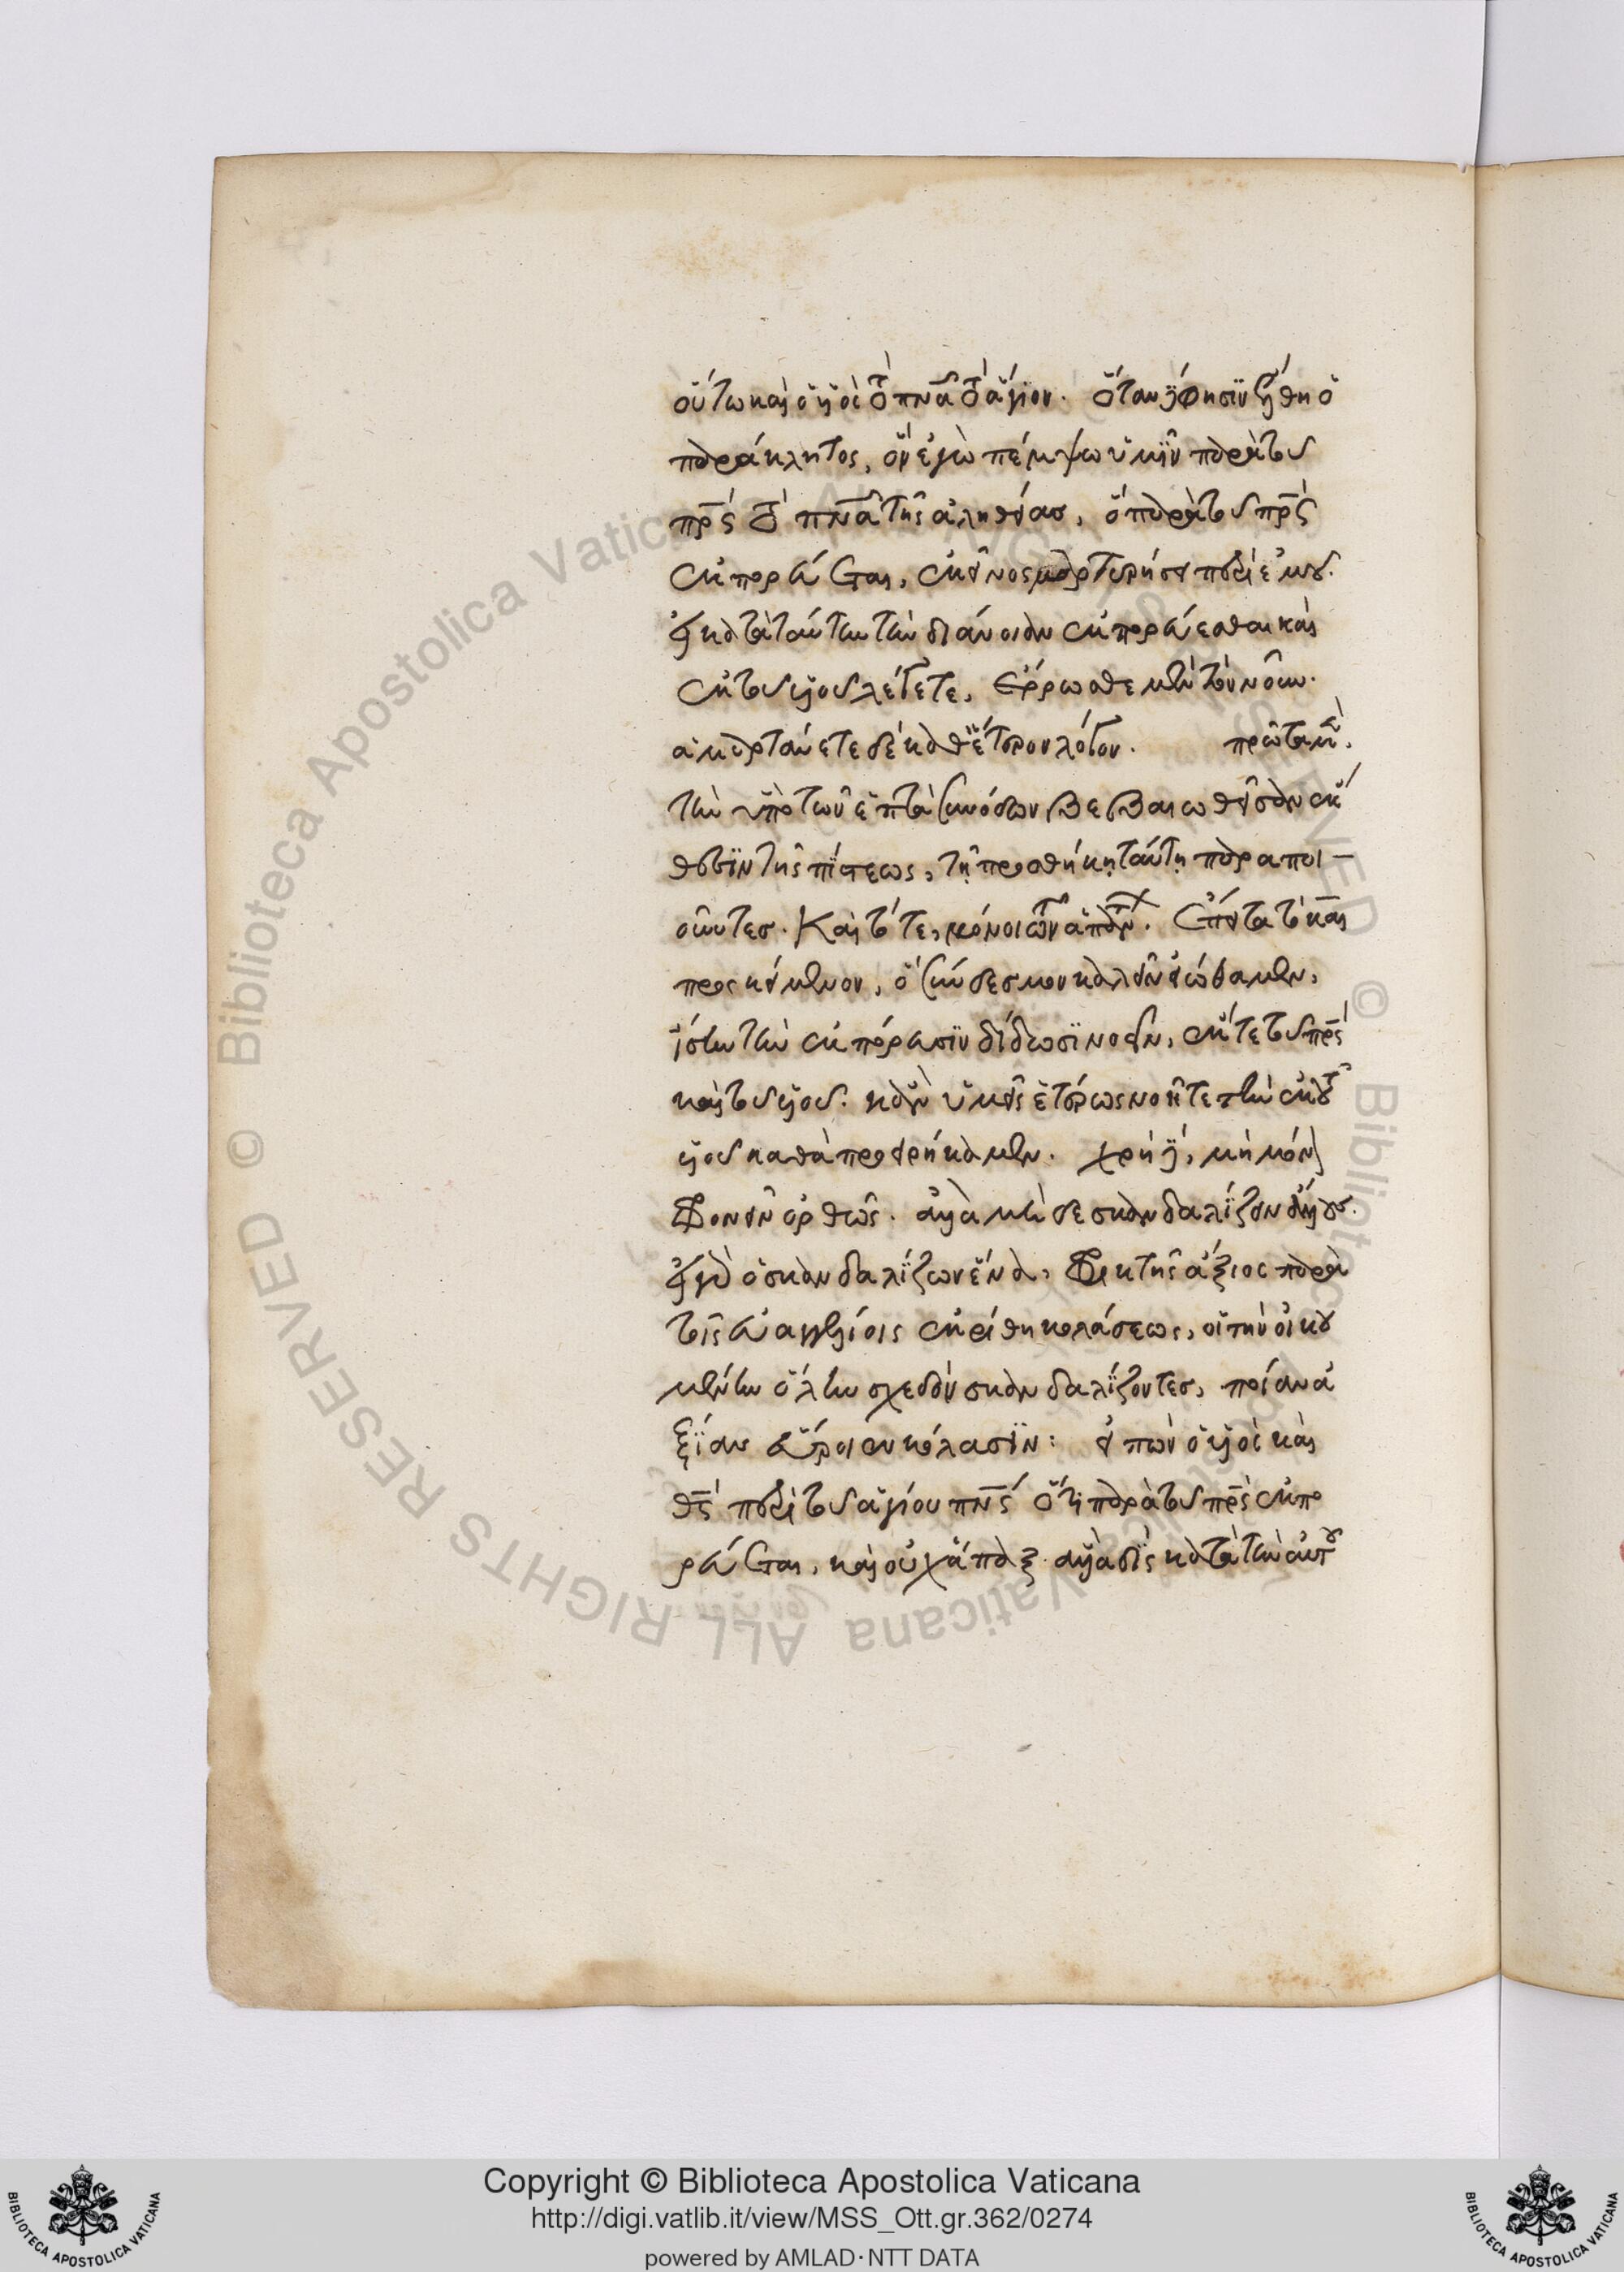 οὕτω καὶ ὁ υἱὸς τὸ πνᾶ τὸ ἅγιον. ὅταν γάρ φησιν ἔλθη ὁ
παράκλητος, ὃν ἐγὼ πέμψω ὑμῖν παρὰ τοῦ
πρς τὸ πνᾶ τῆς ἀληθείας, ὃ παρὰ τοῦ πρς
ἐκπορεύεται, ἐκεῖνος μαρτυρήσει περὶ ἐμοῦ.
εἰ κατὰ ταύτην τὴν διάνοιαν ἐκπορεύεσθαι καὶ
ἐκ τοῦ υἱοῦ λέγετε, ἔρρωσθε μὲν τὸν νοῦν.
ἁμαρτάνετε δὲ καθ' ἕτερον λόγον. πρῶτα μὲν
τὴν ὑπὸ τῶν ἑπτὰ συνόδων βεβαιωθεῖσαν ἔκ
θεσιν τῆς πίστεως, τῇ προσθήκῃ ταύτῃ παραποι-
οῦντες. καὶ τότε, μόνοι τῶν ἁπάντων. ἔπειτα τὸ καὶ
προσκείμενον, ὃ σύνδεσμον καλεῖν εἰώθαμεν,
ἴσην τὴν ἐκπόρευσιν δίδωσι νοεῖν, ἔκ τε τοῦ πρς
καὶ τοῦ υἱοῦ. κἂν ὑμεῖς ἑτέρως νοῆτε τὴν ἐκ τοῦ
υἱοῦ καθὰ προειρήκαμεν. χρὴ γὰρ, μὴ μόνον
φρονεῖν ὀρθῶς. ἀλλὰ μηδὲ σκανδαλίζειν ἄλλους.
εἰ γὰρ ὁ σκανδαλίζων ἕνα, φρικτῆς ἄξιος παρὰ
τοῖς εὐαγγελίοις ἐκρίθη κολάσεως, οἱ τὴν οἰκου
μένην ὅλην σχεδὸν σκανδαλίζοντες, ποίαν ἀ
ξίαν εὕροιεν κόλασιν: εἰπὼν ὁ υἱὸς καὶ
θς περὶ τοῦ ἁγίου πνς ὅτι παρὰ τοῦ πρς ἐκπο
ρεύεται, καὶ οὐχ ἅπαξ. ἀλλὰ δὶς κατὰ τὴν αὐτοῦ